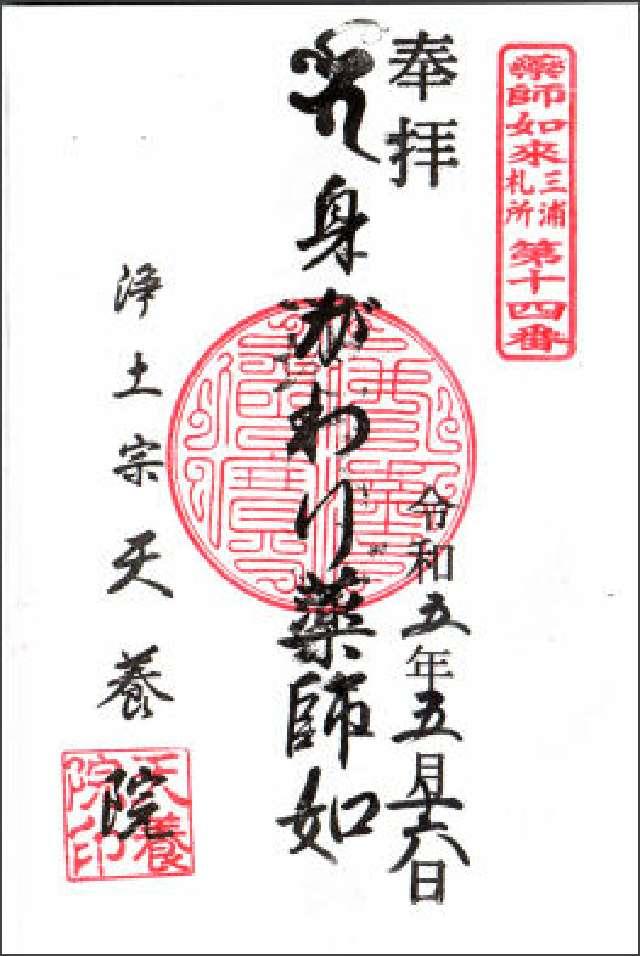 薬師如来
三浦
札所
第十四番
奉拝
令和五年五月十六日
身がわり薬師如
浄土宗天養院
天養
院印